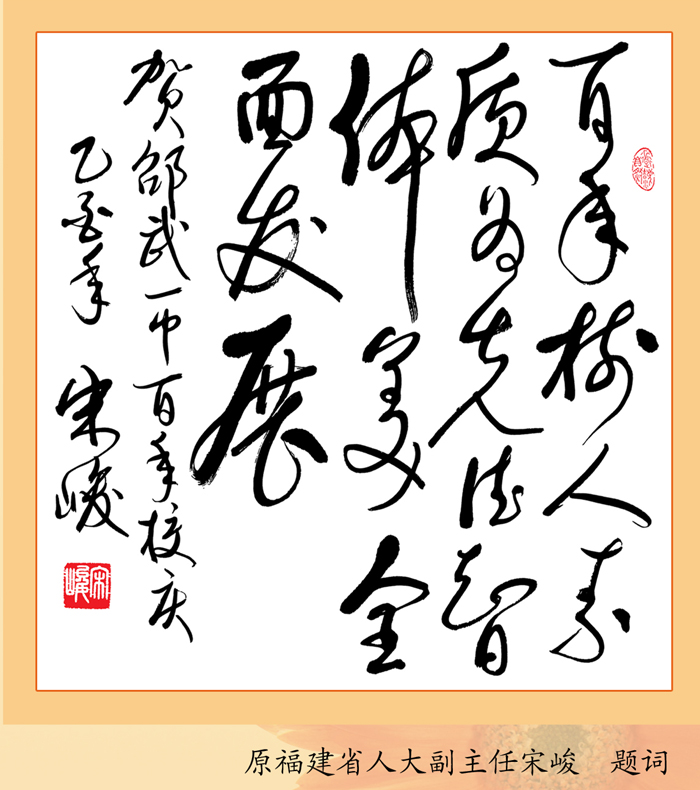 百年树人素
质为先德智
体美全
面发展
贺邵武一中百年校庆
乙酉年 宋峻
宋峻
原福建省人大副主任宋峻 题词